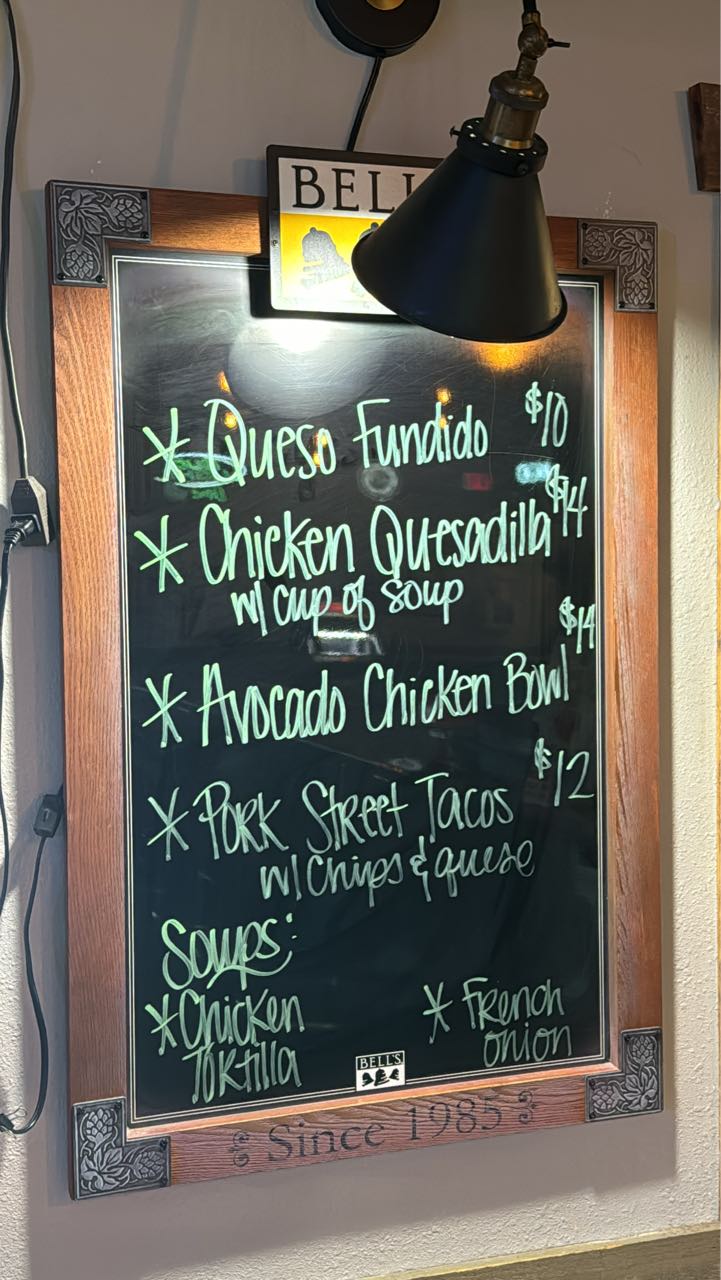 BELL'S
* Queso Fundido $10
* Chicken Quesadilla $14
w/ cup of soup
* Avocado Chicken Bowl $14
* Pork Street Tacos $12
w/ chips & queso
Soups:
* Chicken Tortilla
* French onion
BELL'S
Since 1985